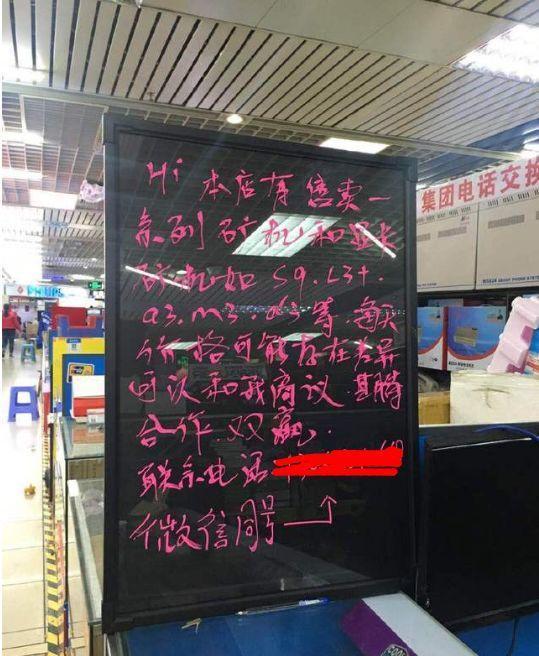 Hi 本店有售卖一
系列矿机和显卡
矿机如 S9. L3+.
a3. m3. 等. 每天
价格可能存在差异
可以和我商议. 期待
合作. 双赢.
联系电话
微信同号
集团电话交换
PHILIPS